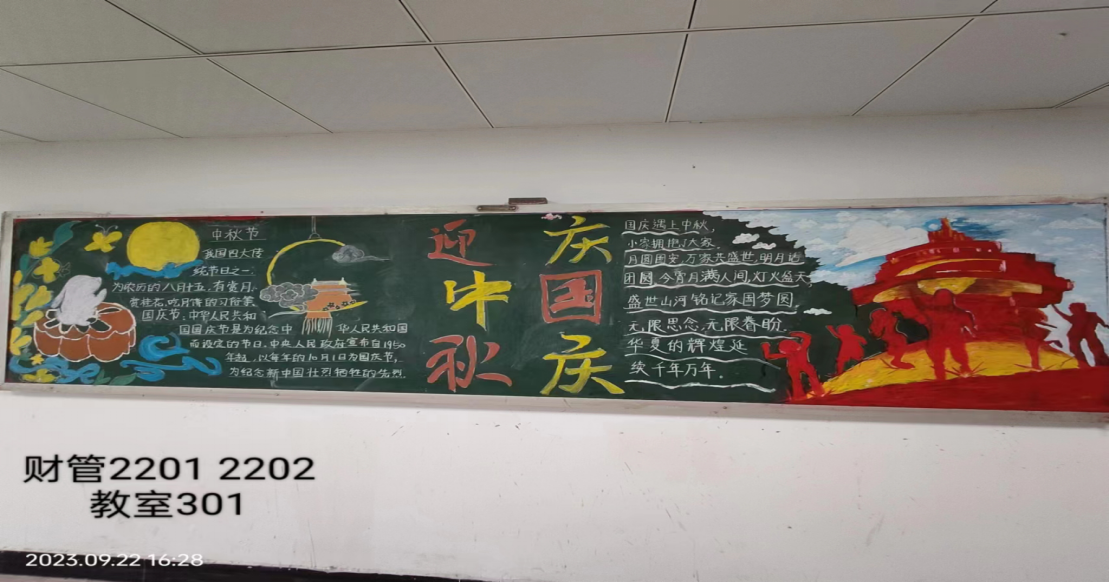 中秋节
我国四大传
统节日之一,
为农历的八月十五,有赏月、
赏桂花、吃月饼的习俗等,
国庆节:中华人民共和
国国庆节是为纪念中 华人民共和国
而设定的节日,中央人民政府宣布自1950
年起,以每年的10月1日为国庆节,
为纪念新中国壮烈牺牲的先烈.
迎
中
秋
庆
国
庆
国庆遇上中秋,
小家拥抱大家.
月圆国安,万家共盛世,明月造
团圆,今宵月满人间,灯火盛天
盛世山河铭记家国梦圆,
无限思念,无限眷盼
华夏的辉煌延
续千年万年.
财管2201 2202
教室301
2023.09.22 16:28